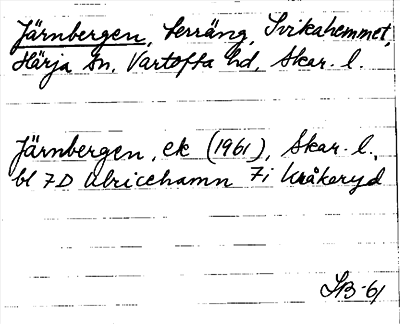 Järnbergen, Serräng, Svikahemmet,
Härja sn, Vartofta hd, Skar. l.
Järnbergen, ek (1961), Skar. l.,
bl 7D Ulricehamn 7i Kråkeryd
SB-61